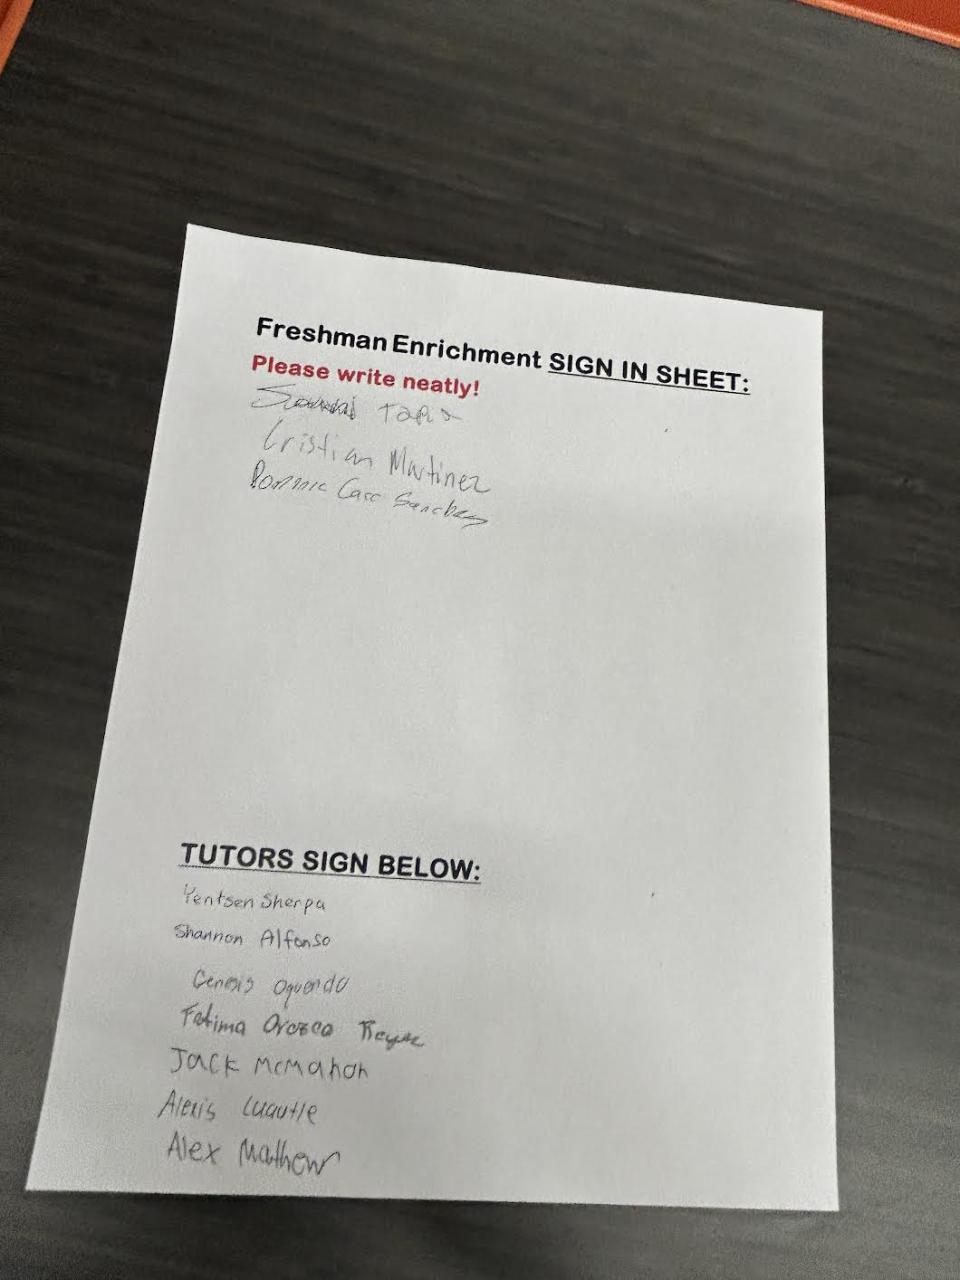 Freshman Enrichment SIGN IN SHEET:
Please write neatly!
Tapia
Cristian Martinez
Sanchez
TUTORS SIGN BELOW:
Yentsen Sherpa
Shannon Alfonso
Genesis Oquendo
Fatima Orozco Reyes
Jack McMahon
Alexis Luautle
Alex Mathew